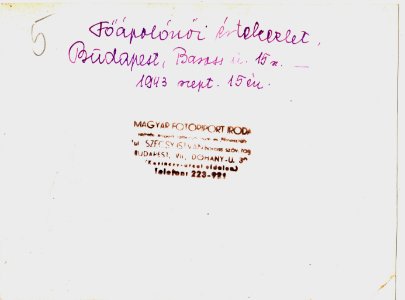 5
Főápolónői értekezlet,
Budapest, Baross u. 15 sz. —
1943 szept. 15én.
MAGYAR FOTORIPORT IRODA
Tul. SZÉCSY ISTVÁN
BUDAPEST, VII., DOHÁNY-U.
(Kazinczy-utcai oldalon)
Telefon: 223-981